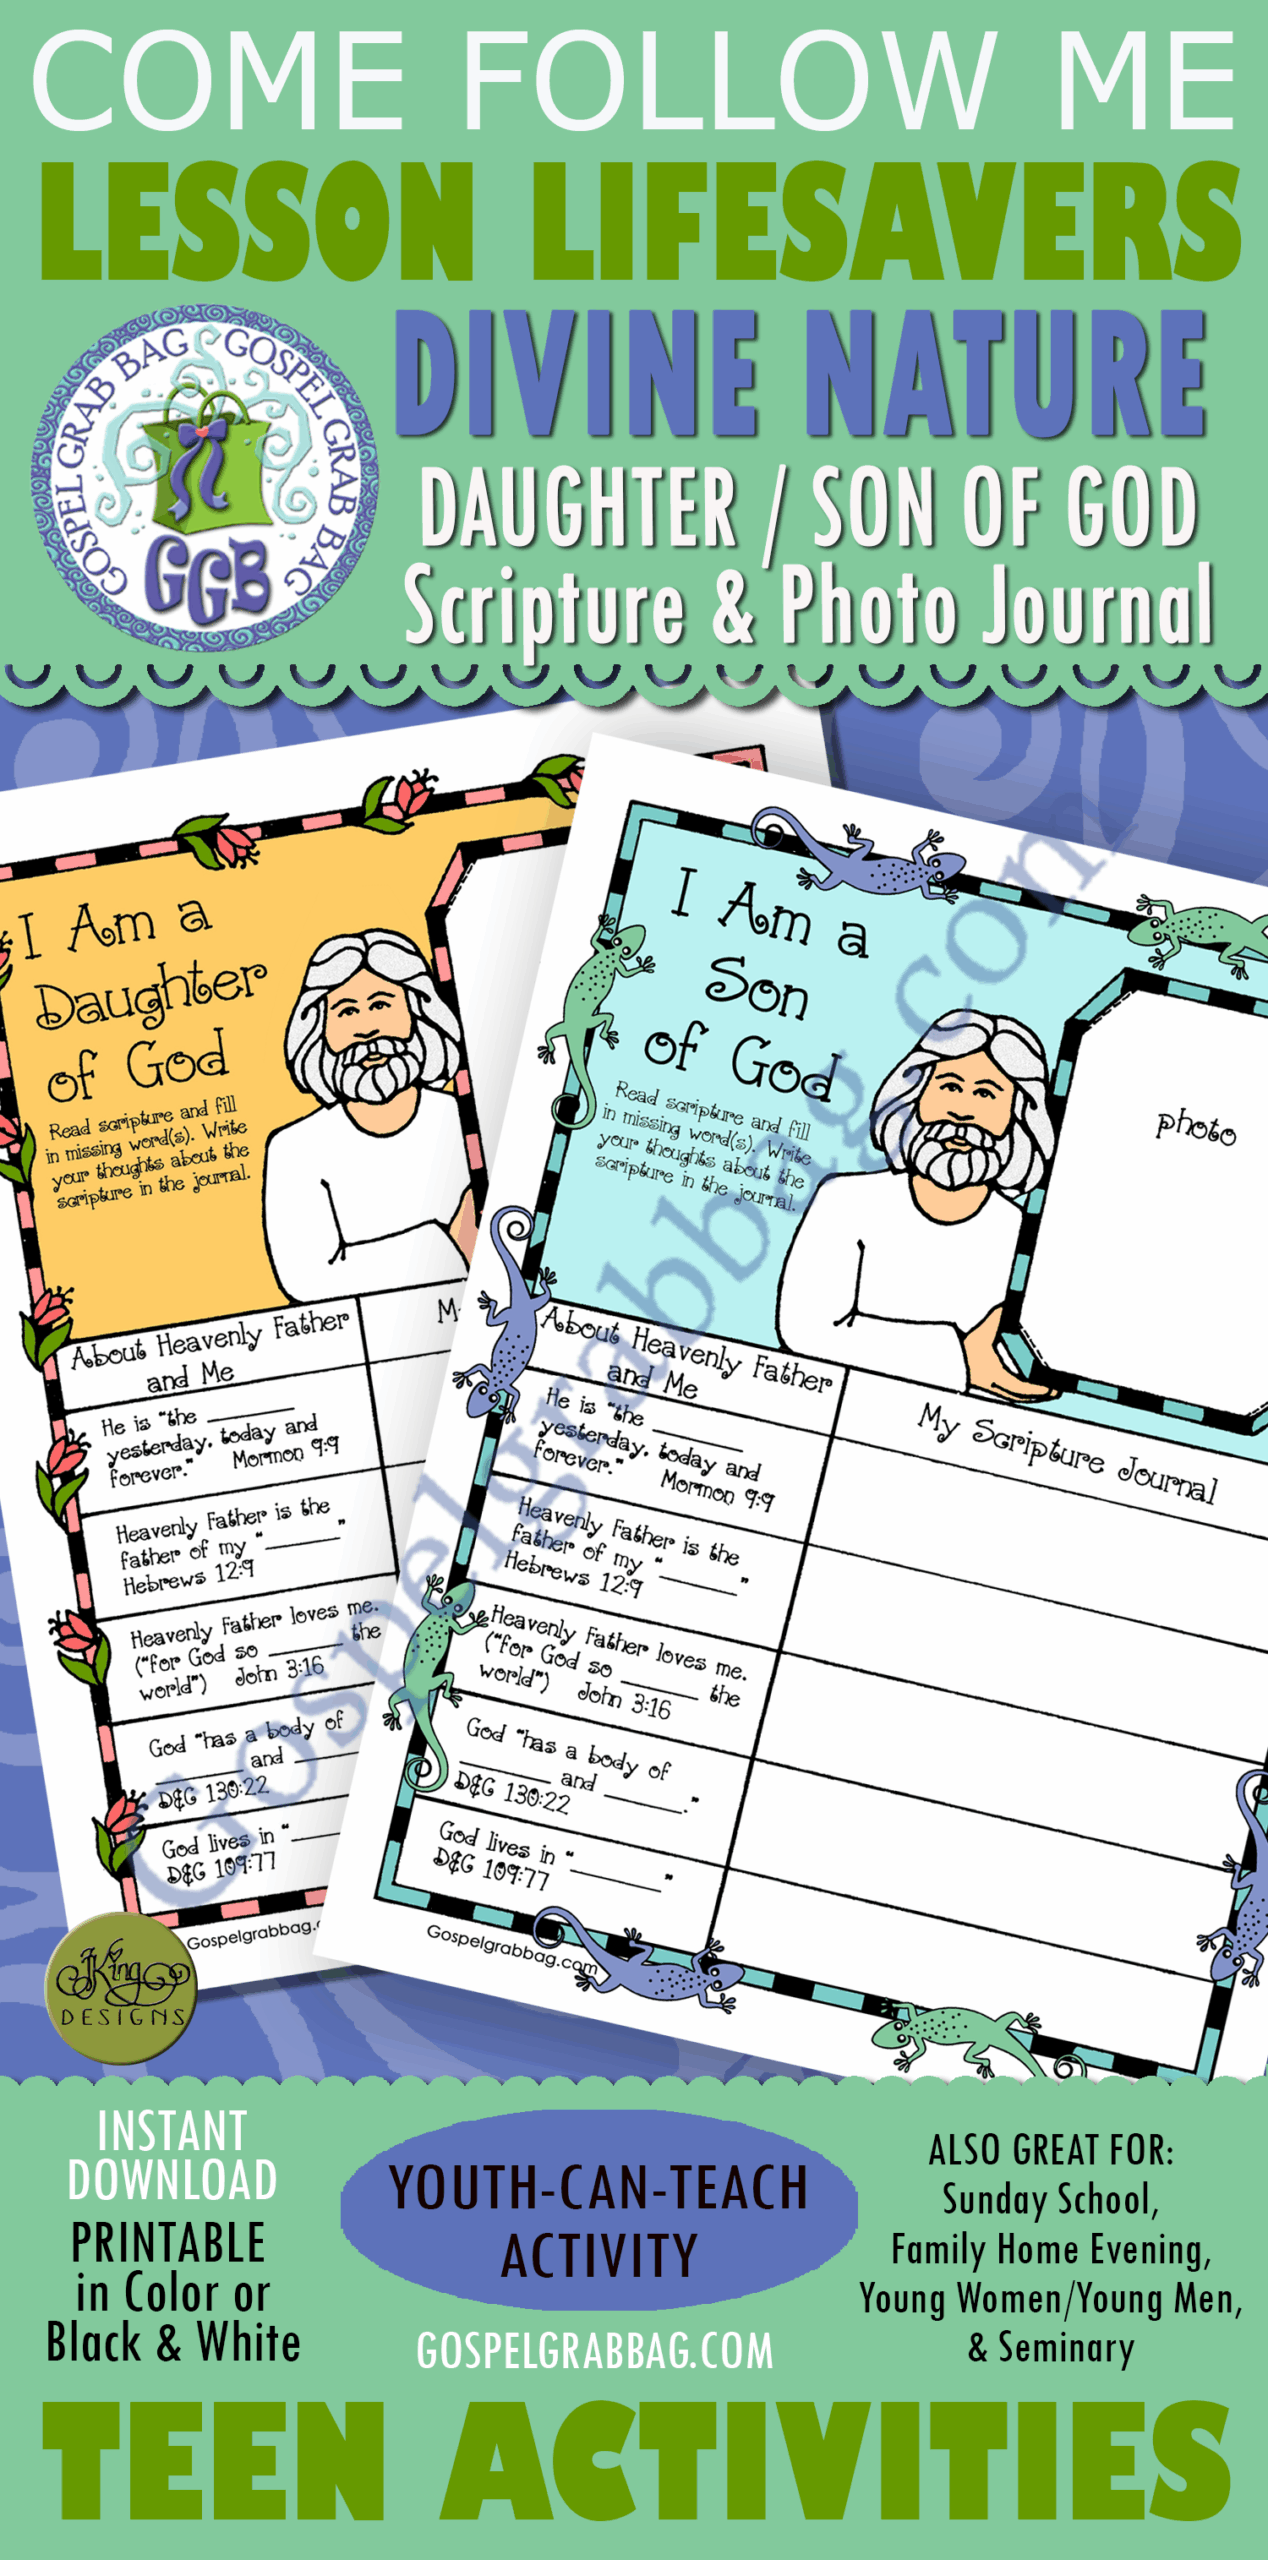 COME FOLLOW ME
LESSON LIFESAVERS
GOSPEL GRAB BAG GOSPEL GRAB BAG
GGB
DIVINE NATURE
DAUGHTER / SON OF GOD
Scripture & Photo Journal
I Am a
Daughter
of God
Read scripture and fill
in missing word(s). Write
your thoughts about the
scripture in the journal.
About Heavenly Father
and Me
M
He is "the ______
yesterday, today and
forever." Mormon 9:9
Heavenly Father is the
father of my "______"
Hebrews 12:9
Heavenly Father loves me.
("for God so ______ the
world") John 3:16
God "has a body of
______ and ______
D&C 130:22
God lives in "______
D&C 109:77
Gospelgrabbag.c
I Am a
Son
of God
Read scripture and fill
in missing word(s). Write
your thoughts about the
scripture in the journal.
photo
About Heavenly Father
and Me
My Scripture Journal
He is "the ______
yesterday, today and
forever." Mormon 9:9
Heavenly Father is the
father of my "______"
Hebrews 12:9
Heavenly Father loves me.
("for God so ______ the
world") John 3:16
God "has a body of
______ and ______."
D&C 130:22
God lives in "______"
D&C 109:77
Gospelgrabbag.com
Gospelgrabbag.com
JKing
DESIGNS
INSTANT
DOWNLOAD
PRINTABLE
in Color or
Black & White
YOUTH-CAN-TEACH
ACTIVITY
GOSPELGRABBAG.COM
ALSO GREAT FOR:
Sunday School,
Family Home Evening,
Young Women/Young Men,
& Seminary
TEEN ACTIVITIES